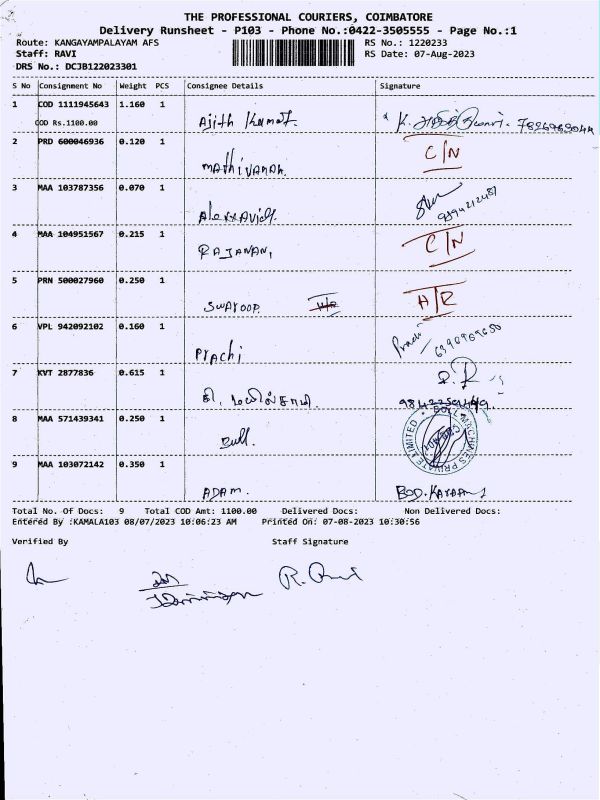 THE PROFESSIONAL COURIERS, COIMBATORE
Delivery Runsheet - P103 - Phone No.:0422-3505555 - Page No.:1
Route: KANGAYAMPALAYAM AFS RS No.: 1220233
Staff: RAVI RS Date: 07-Aug-2023
DRS No.: DCJB122023301
S No Consignment No Weight PCS Consignee Details Signature
1 COD 1111945643 1.160 1
COD Rs.1100.00 Ajith Kumar. K.
2 PRD 600046936 0.120 1 C/N
Mathivanan.
3 MAA 103787356 0.070 1
9894212487
4 MAA 104951567 0.215 1 C/N
RAJANAN,
5 PRN 500027960 0.250 1 A/R
SWAROOP.
6 VPL 942092102 0.160 1 Prachi 6390969650
Prachi
7 KVT 2877836 0.615 1
8 MAA 571439341 0.250 1 BULL MACHINES PRIVATE LIMITED
Bull.
9 MAA 103072142 0.350 1
ADAM.
Total No. Of Docs: 9 Total COD Amt: 1100.00 Delivered Docs: Non Delivered Docs:
Entered By :KAMALA103 08/07/2023 10:06:23 AM Printed On: 07-08-2023 10:30:56
Verified By Staff Signature